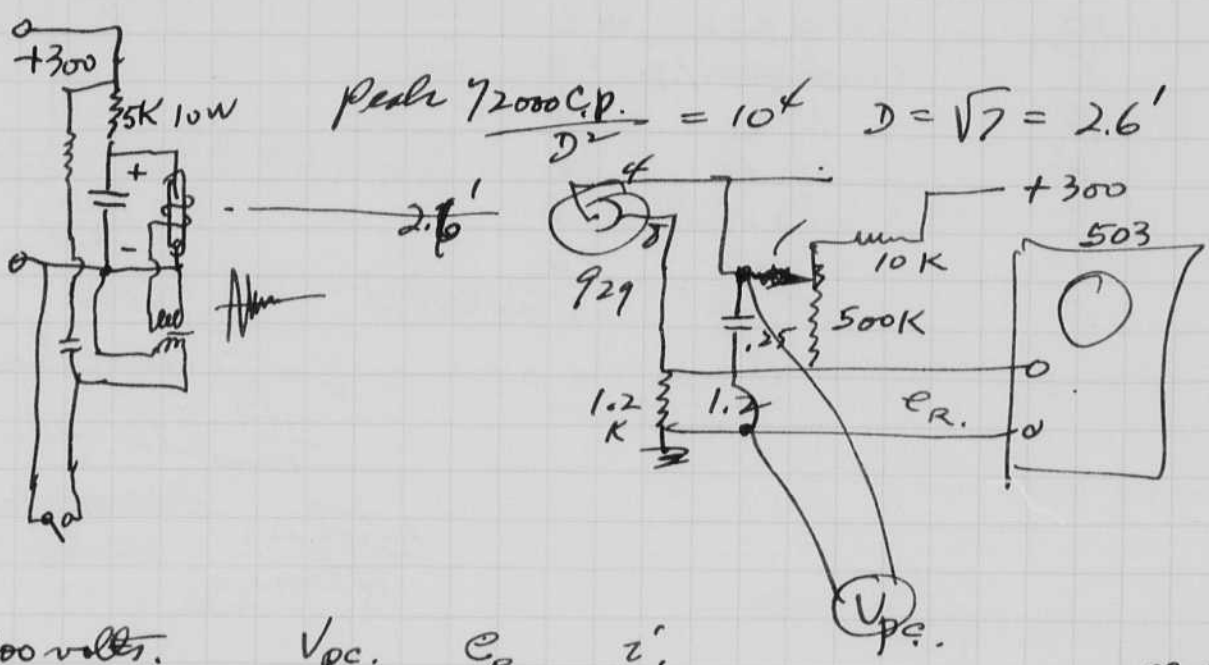 +300
5K 10W
Peak 72000 C.P. / D² = 10⁴ D = √7 = 2.6'
+
-
2.6'
4
8
929
+300
10K
503
500K
.25
1.2 K
1.2
e_R.
V_pc.
00 volts. V_pc. e_R i